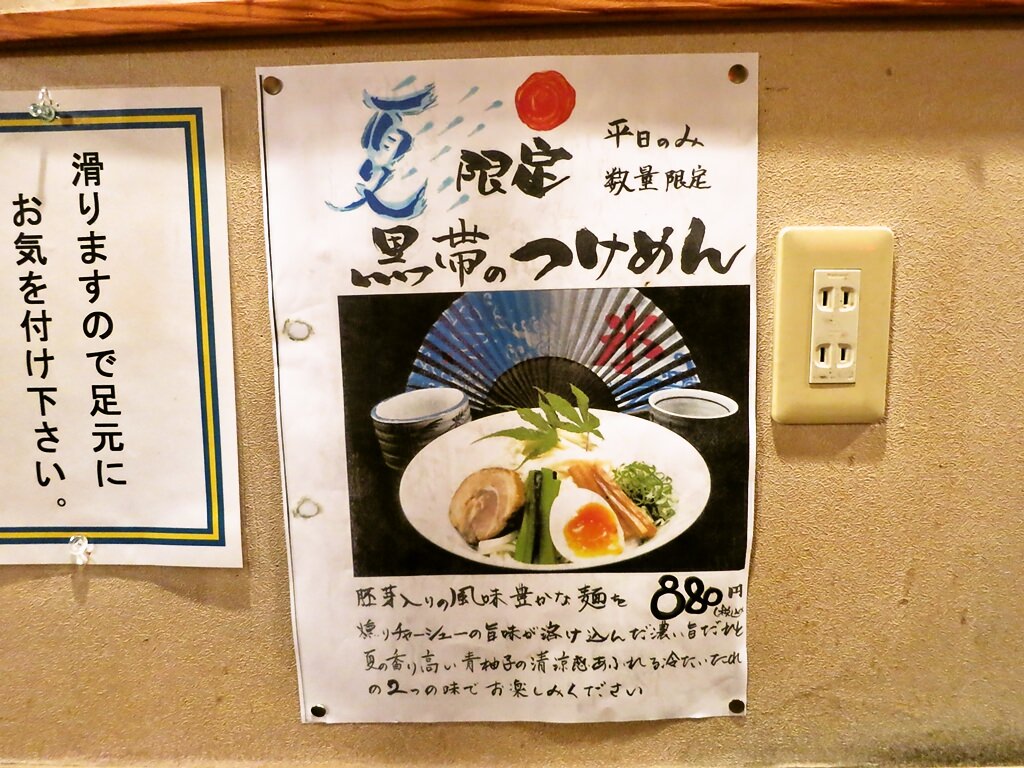 滑りますので足元に
お気を付け下さい。
夏限定
平日のみ
数量限定
黒帯のつけめん
氷
胚芽入りの風味豊かな麺を
880円
(税込)
燻りチャーシューの旨味が溶け込んだ濃い旨だれと
夏の香り高い青柚子の清涼感あふれる冷たいたれ
の2つの味でお楽しみください